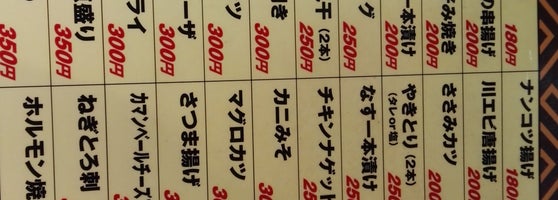 180円
の串揚げ 200円
み焼き 200円
一本漬け 200円
グ 250円
干(2本) 250円
き 300円
ツ 300円
ーザ 300円
ライ 300円
盛り 350円
350円
ナンコツ揚げ 180
川エビ唐揚げ 200
ささみカツ 200
やきとり(2本)
(タレor塩) 250
なす一本漬け 250
チキンナゲット 25
カニみそ 30
マグロカツ 30
さつま揚げ 3
カマンベールチーズ
ねぎとろ刺
ホルモン焼